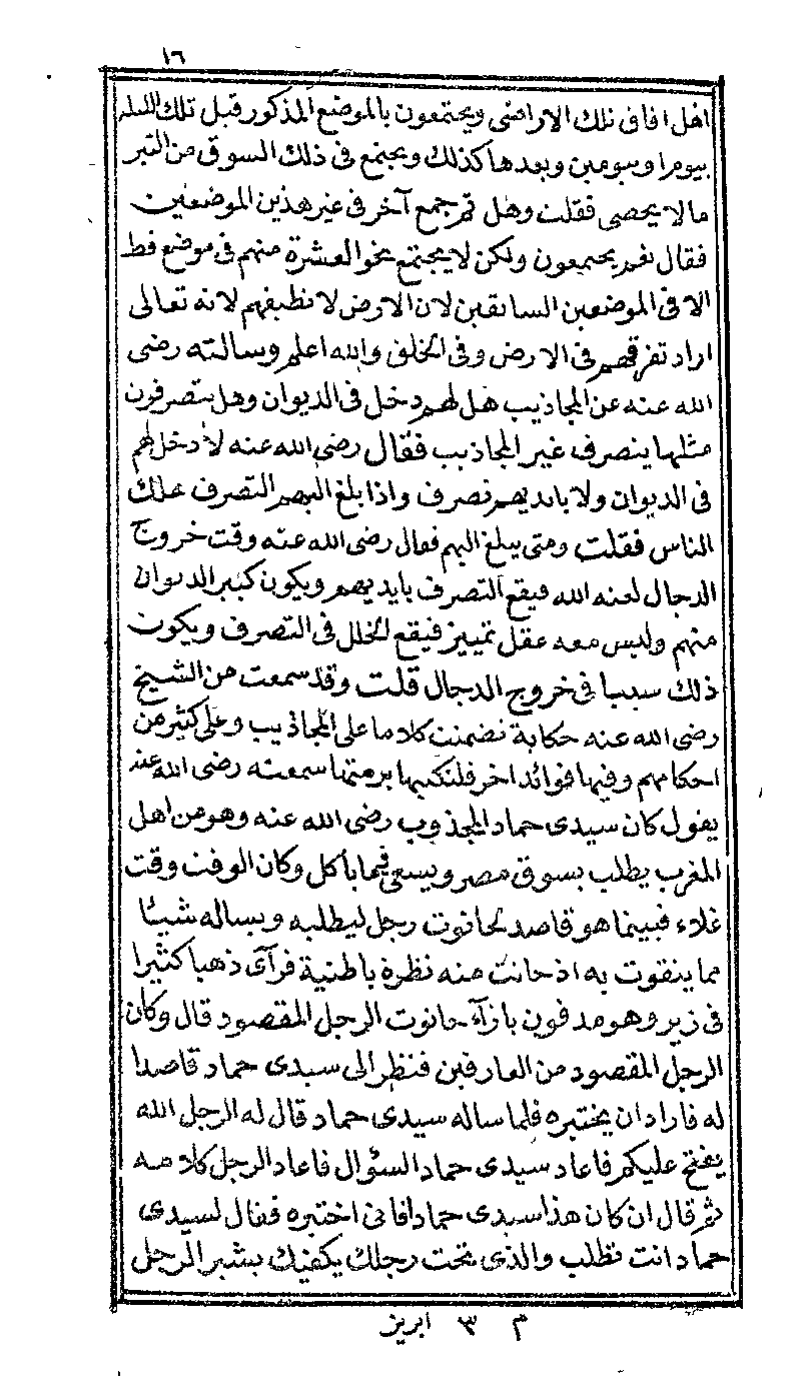 ١٦
اهل آفاق تلك الاراضى ويجتمعون بالموضع المذكور قبل تلك الليلة
بيوم او يومين وبعدها كذلك ويجتمع فى ذلك السوق من التبر
مالا يحصى فقلت وهل ثم جمع آخر فى غير هذين الموضعين
فقال نعم يجتمعون ولكن لا يجتمع نحو العشرة منهم فى موضع قط
الا فى الموضعين السابقين لان الارض لا تطيقهم لانه تعالى
اراد تفرقهم فى الارض وفى الخلق والله اعلم وسالته رضى
الله عنه عن المجاذيب هل لهم دخل فى الديوان وهل يتصرفون
مثلما يتصرف غير المجاذيب فقال رضى الله عنه لا دخل لهم
فى الديوان ولا بايديهم تصرف واذا بلغ اليهم التصرف هلك
الناس فقلت ومتى يبلغ اليهم فقال رضى الله عنه وقت خروج
الدجال لعنه الله فيقع التصرف بايديهم ويكون كبير الديوان
منهم وليس معه عقل تمييز فيقع الخلل فى التصرف ويكون
ذلك سببا فى خروج الدجال قلت وقد سمعت من الشيخ
رضى الله عنه حكاية تضمنت كلاما على المجاذيب وعلى كثير من
احكامهم وفيها فوائد اخر فلنكتبها برمتها سمعته رضى الله عنه
يقول كان سيدى حماد المجذوب رضى الله عنه وهو من اهل
المغرب يطلب بسوق مصر ويسعى فيما ياكل وكان الوقت وقت
غلاء فبينما هو قاصد لحانوت رجل ليطلبه ويساله شيئا
مما يتقوت به اذ حانت منه نظرة باطنية فرآى ذهبا كثيرا
فى زير وهو مدفون بازآء حانوت الرجل المقصود قال وكان
الرجل المقصود من العارفين فنظر الى سيدى حماد قاصدا
له فاراد ان يختبره فلما ساله سيدى حماد قال له الرجل الله
يفتح عليكم فاعاد سيدى حماد السؤال فاعاد الرجل كلامه
ثم قال ان كان هذا سيدى حمادا فانى اختبره فقال لسيدى
حماد انت تطلب والذى تحت رجلك يكفيك بشبر الرجل
م ٣ ابريز